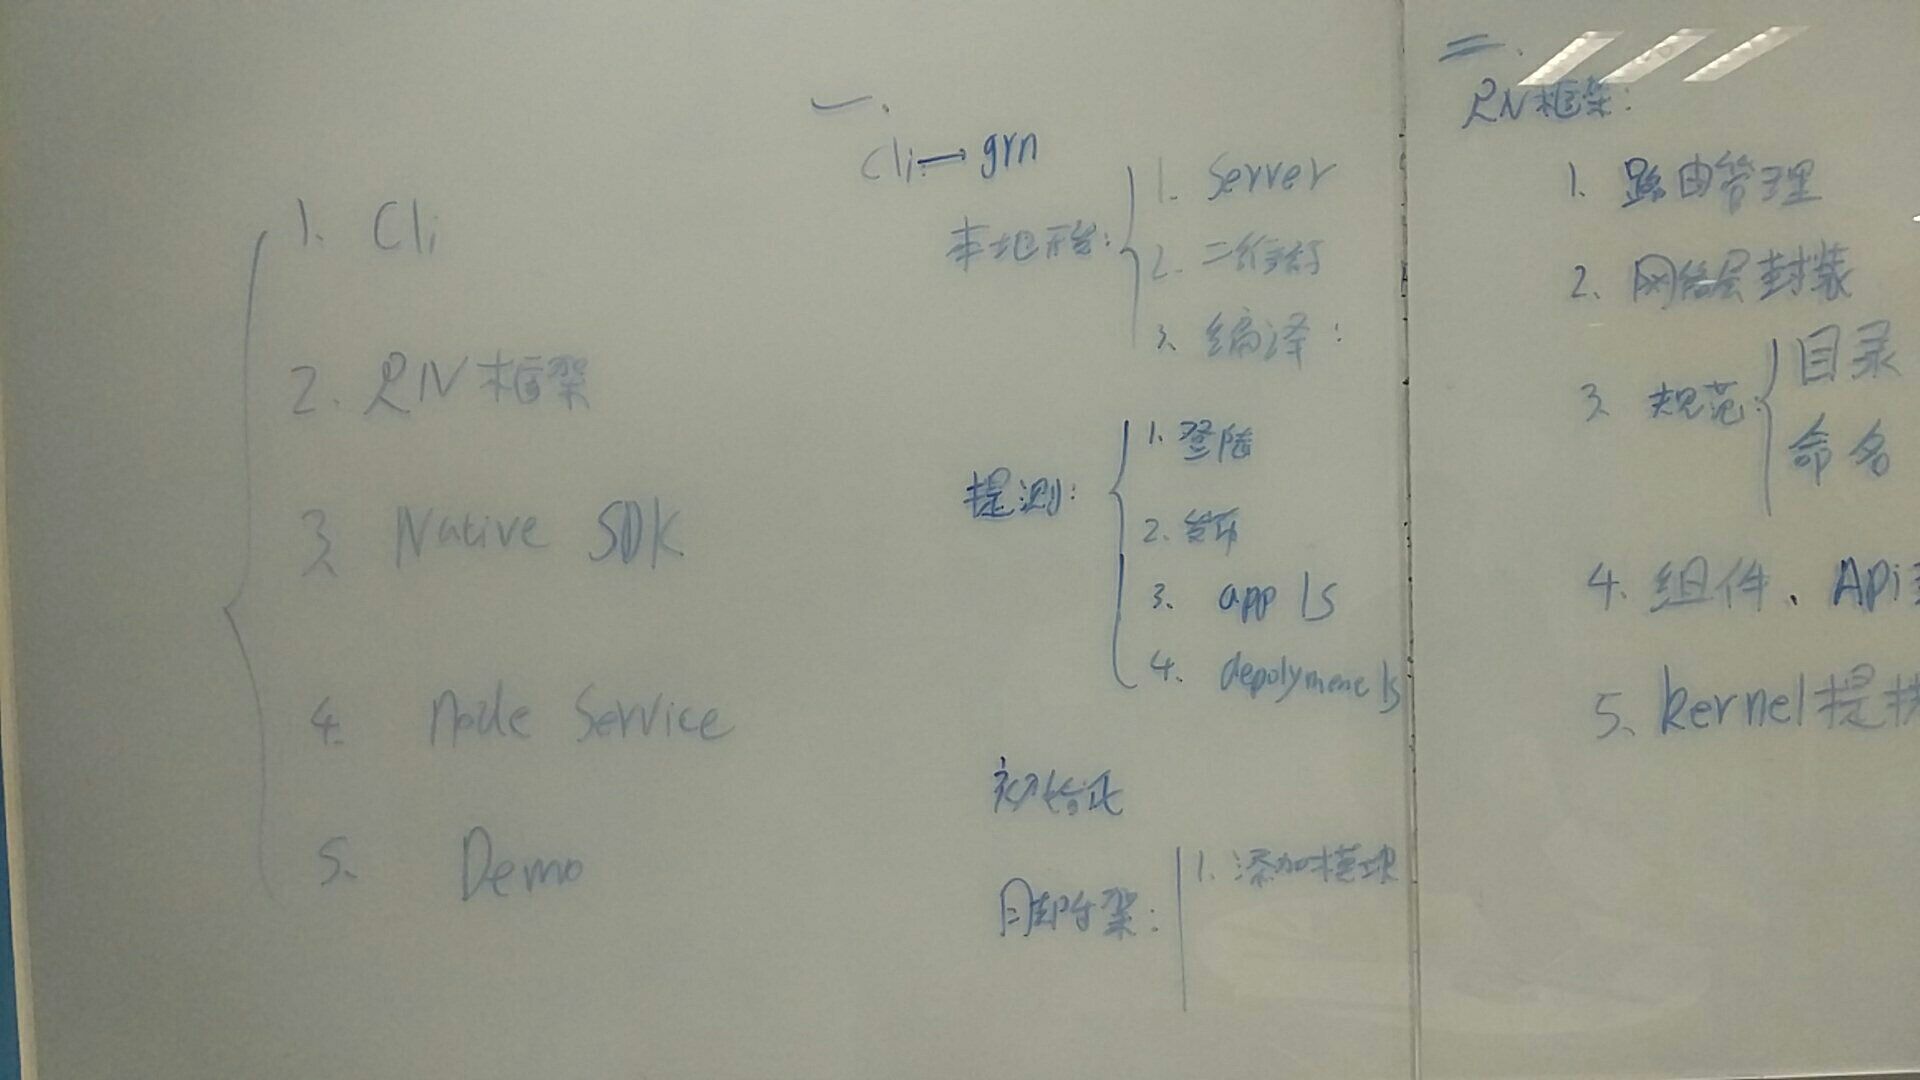 1. Cli
2. RN框架
3. Native SDK
4. Node Service
5. Demo
一.
Cli → grn
本地开发:
1. Server
2. 二维码
3. 编译:
提测:
1. 登陆
2. 发布
3. app ls
4. depolyment ls
初始化
脚手架:
1. 添加模块
二.
RN框架:
1. 路由管理
2. 网络层封装
3. 规范:
目录
命名
4. 组件、Api
5. kernel提